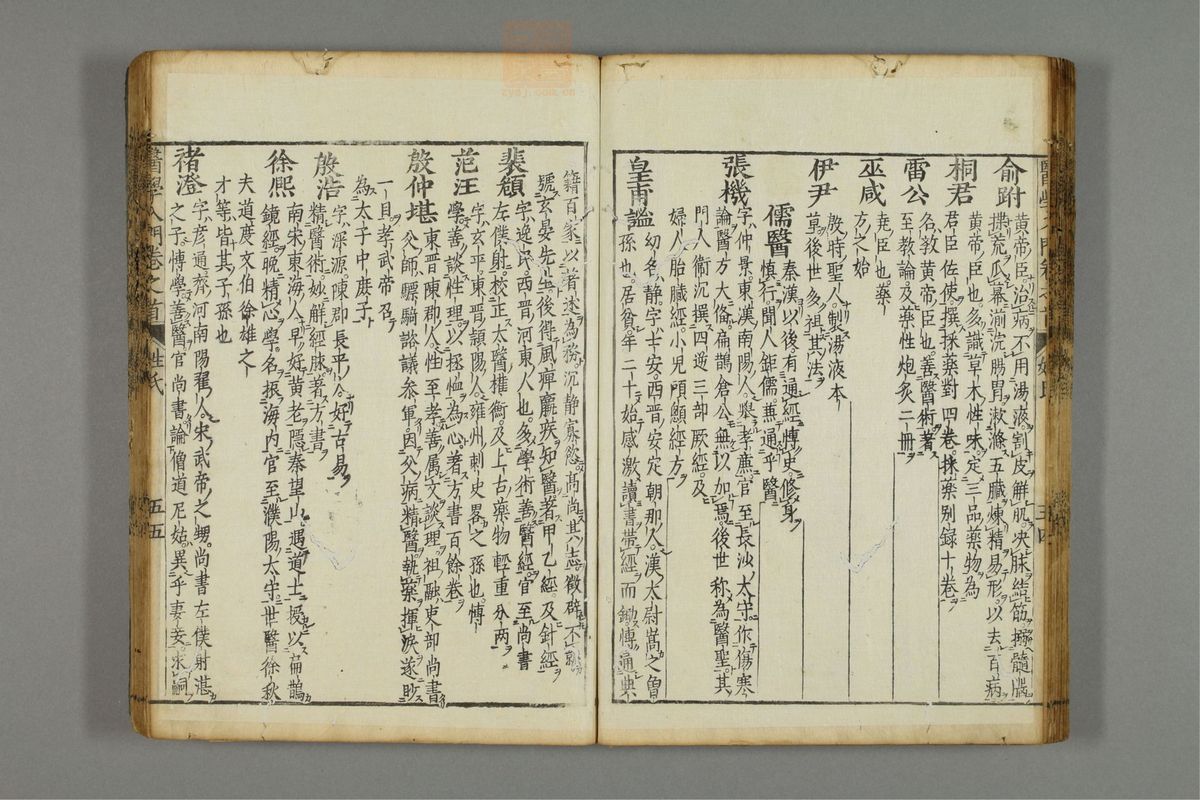 俞跗 黃帝臣治病不用湯液割皮解肌決脉結筋
揲荒瓜幕湔浣腸胃漱滌五臟煉精易形以去百病
桐君 黃帝臣也多識草木性味定三品藥物為
君臣佐使撰採藥對四卷採藥別録十卷
雷公 名斅黃帝臣也善醫術著
至教論及藥性炮炙二冊
巫咸 堯臣也藥
方之始
伊尹 殷時聖人製湯液本
草後世多祖其法
儒醫 秦漢以後有通經博史修身
慎行聞人鉅儒兼通乎醫
張機 字仲景東漢南陽人舉孝廉官至長沙太守作傷寒
論醫方大備扁鵲倉公無以加焉後世称為醫聖其
門人衞沉撰四逆三部厥經及
婦人胎臟經小兒顖顱經方
皇甫謐 幼名静字士安西晋安定朝那人漢太尉嵩之曾
孫也居貧年二十始感激讀書帶經而鋤博通典
籍百家以著述為務沉静寡慾高尚其志徵辟不就
號玄晏先生後得風痺羸疾知醫著甲乙經及針經
裴頠 字逸民西晋河東人也多學術善醫經官至尚書
左僕射校正太醫權衡及上古藥物輕重分兩
范汪 字玄平東晋頴陽人雍州刺史晷之孫也博
學善談性理以拯恤為心著方書百餘卷
殷仲堪 東晋陳郡人性至孝善属文談理祖融吏部尚書
父師驃騎諮議參軍因父病精醫執藥揮淚遂眇
一目孝武帝召
為太子中庶子
殷浩 字深源陳郡長平人好古易
精醫術妙解經脉著方書
徐熙 南宋東海人早好黃老隱秦望山遇道士授以扁鵲
鏡經晚精心學名振海内官至濮陽太守世醫徐秋
夫道度文伯徐雄之
才等皆其子孫也
褚澄 字彦通齊河南陽翟人宋武帝之甥尚書左僕射湛
之之子博學善醫官尚書論僧道尼姑異乎妻妾求嗣
醫學入門卷之首 姓氏 五五